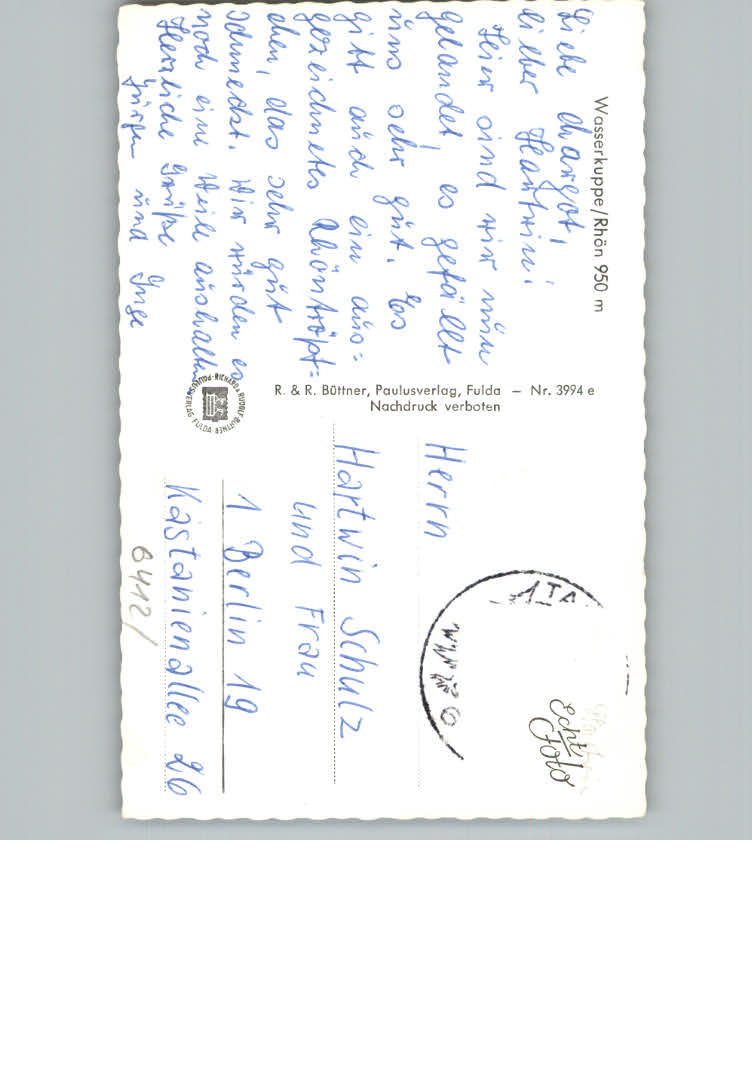 Wasserkuppe/Rhön 950 m
Liebe Margot,
lieber Hartwin!
Hier sind wir nun
gelandet, es gefällt
uns sehr gut. Es
gibt auch ein aus=
gezeichnetes Rhöntröpf=
chen, das sehr gut
schmeckt. Wir würden es
noch eine Weile aushalten.
Herzliche Grüße
Jürgen und Inge
R. & R. Büttner, Paulusverlag, Fulda – Nr. 3994 e
Nachdruck verboten
PAULUSVERLAG RICHARD u. RUDOLF BÜTTNER FULDA
Echt
Foto
Herrn
Hartwin Schulz
und Frau
1 Berlin 19
Kastanienallee 26
6412/